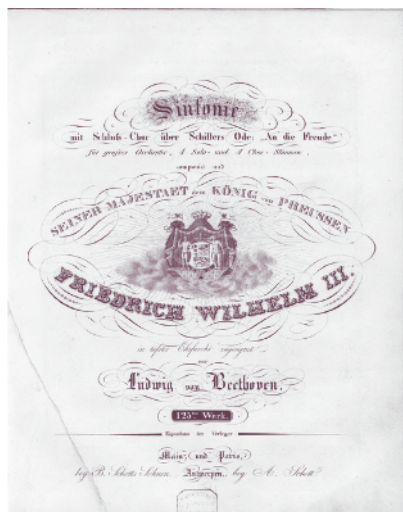 Sinfonie
mit Schluss-Chor über Schillers Ode: „An die Freude“
für grosses Orchester, 4 Solo- und 4 Chor-Stimmen,
componirt und
SEINER MAJESTAET dem KÖNIG von PREUSSEN
FRIEDRICH WILHELM III.
in tiefster Ehrfurcht zugeeignet
von
Ludwig van Beethoven.
125tes Werk.
Eigenthum der Verleger
Mainz und Paris,
bey B. Schotts Söhnen. Antwerpen, bey A. Schott.